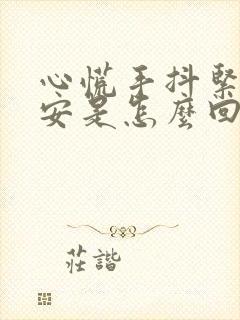 心慌手抖緊
安是怎麼回
莊諧